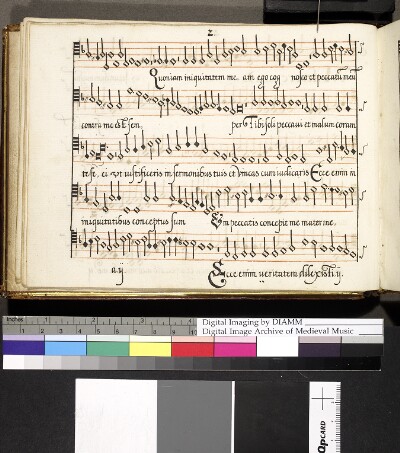 2.
Quoniam iniquitatem me. am ego cog nosco et peccatum meū
contra me est sem, per Tibi soli peccavi et malum coram
te fe, ci vt iustificeris in sermonibus tuis et vincas cum iudicaris Ecce enim in
iniquitatibus conceptus sum Et in peccatis concepit me mater me.
a. ij Ecce enim veritatem dilexisti ij.
inches 1 2 3 4 5 6 7 8 9
Digital Imaging by DIAMM
Digital Image Archive of Medieval Music
QPCARD